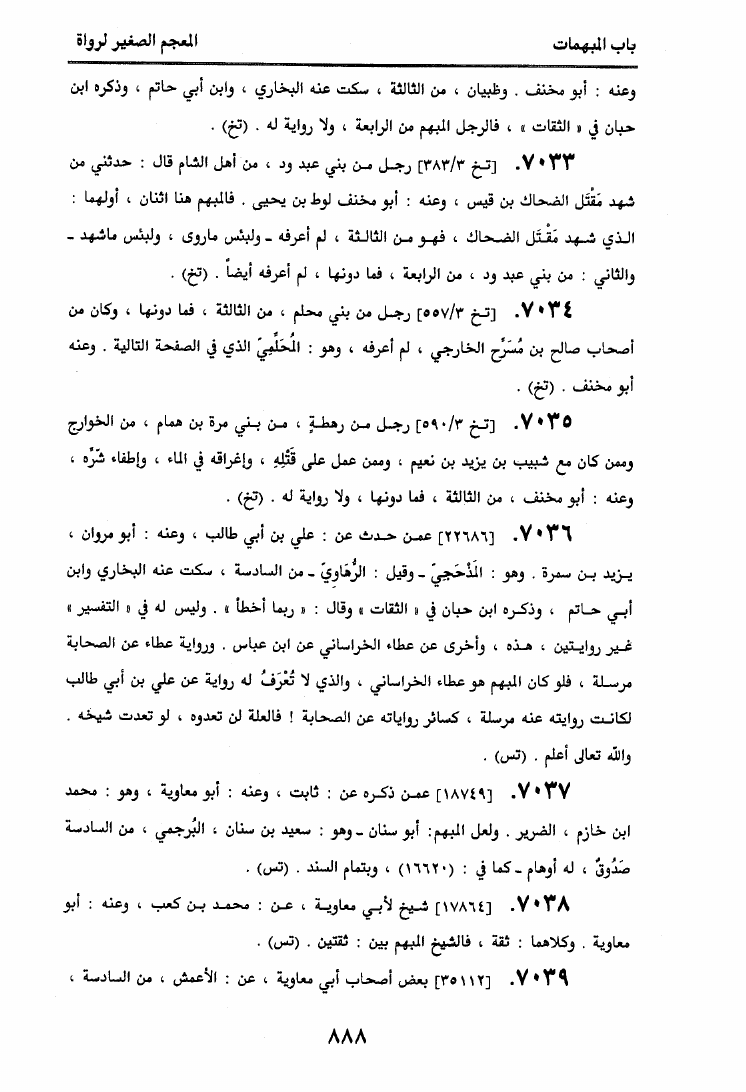 باب المبهمات
المعجم الصغير لرواة
وعنه : أبو مخنف . وظبيان ، من الثالثة ، سكت عنه البخاري ، وابن أبي حاتم ، وذكره ابن
حبان في « الثقات » ، فالرجل المبهم من الرابعة ، ولا رواية له . (تخ) .
٧٠٣٣. [تخ ٣٨٣/٣] رجل من بني عبد ود ، من أهل الشام قال : حدثني من
شهد مَقْتَل الضحاك بن قيس ، وعنه : أبو مخنف لوط بن يحيى . فالمبهم هنا اثنان ، أولهما :
الذي شهد مَقْتَل الضحاك ، فهو من الثالثة ، لم أعرفه ـ ولبئس ماروى ، ولبئس ماشهد ـ
والثاني : من بني عبد ود ، من الرابعة ، فما دونها ، لم أعرفه أيضاً . (تخ) .
٧٠٣٤. [تخ ٥٥٧/٣] رجل من بني محلم ، من الثالثة ، فما دونها ، وكان من
أصحاب صالح بن مُسَرِّح الخارجي ، لم أعرفه ، وهو : المُحَلِّمِيّ الذي في الصفحة التالية . وعنه
أبو مخنف . (تخ) .
٧٠٣٥. [تخ ٥٩٠/٣] رجل من رهطةٍ ، من بني مرة بن همام ، من الخوارج
وممن كان مع شبيب بن يزيد بن نعيم ، وممن عمل على قَتْلِهِ ، وإغراقه في الماء ، وإطفاء شَرِّه ،
وعنه : أبو مخنف ، من الثالثة ، فما دونها ، ولا رواية له . (تخ) .
٧٠٣٦. [٢٢٦٨٦] عمن حدث عن : علي بن أبي طالب ، وعنه : أبو مروان ،
يزيد بن سمرة . وهو : المَذْحَجِيّ ـ وقيل : الرُّهَاوِيّ ـ من السادسة ، سكت عنه البخاري وابن
أبي حاتم ، وذكره ابن حبان في « الثقات » وقال : « ربما أخطأ » . وليس له في « التفسير »
غير روايتين ، هذه ، وأخرى عن عطاء الخراساني عن ابن عباس . ورواية عطاء عن الصحابة
مرسلة ، فلو كان المبهم هو عطاء الخراساني ، والذي لا تُعْرَفُ له رواية عن علي بن أبي طالب
لكانت روايته عنه مرسلة ، كسائر رواياته عن الصحابة ! فالعلة لن تعدوه ، لو تعدت شيخه .
والله تعالى أعلم . (تس) .
٧٠٣٧. [١٨٧٤٩] عمن ذكره عن : ثابت ، وعنه : أبو معاوية ، وهو : محمد
ابن خازم ، الضرير . ولعل المبهم: أبو سنان ـ وهو : سعيد بن سنان ، البُرجمي ، من السادسة
صَدُوقٌ ، له أوهام ـ كما في : (١٦٦٢٠) ، وبتمام السند . (تس) .
٧٠٣٨. [١٧٨٦٤] شيخ لأبي معاوية ، عن : محمد بن كعب ، وعنه : أبو
معاوية . وكلاهما : ثقة ، فالشيخ المبهم بين : ثقتين . (تس) .
٧٠٣٩. [٣٥١١٢] بعض أصحاب أبي معاوية ، عن : الأعمش ، من السادسة ،
٨٨٨